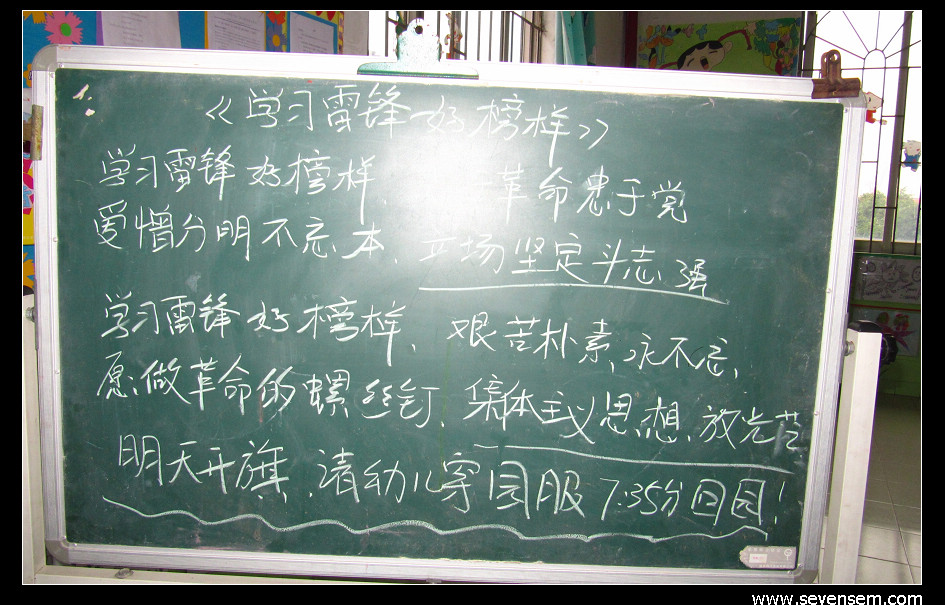 《学习雷锋好榜样》
学习雷锋好榜样、革命忠于党
爱憎分明不忘本、立场坚定斗志强
学习雷锋好榜样、艰苦朴素永不忘、
愿做革命的螺丝钉、集体主义思想、放光芒
明天开旗、请幼儿穿园服7:35分回园!
www.sevensem.com